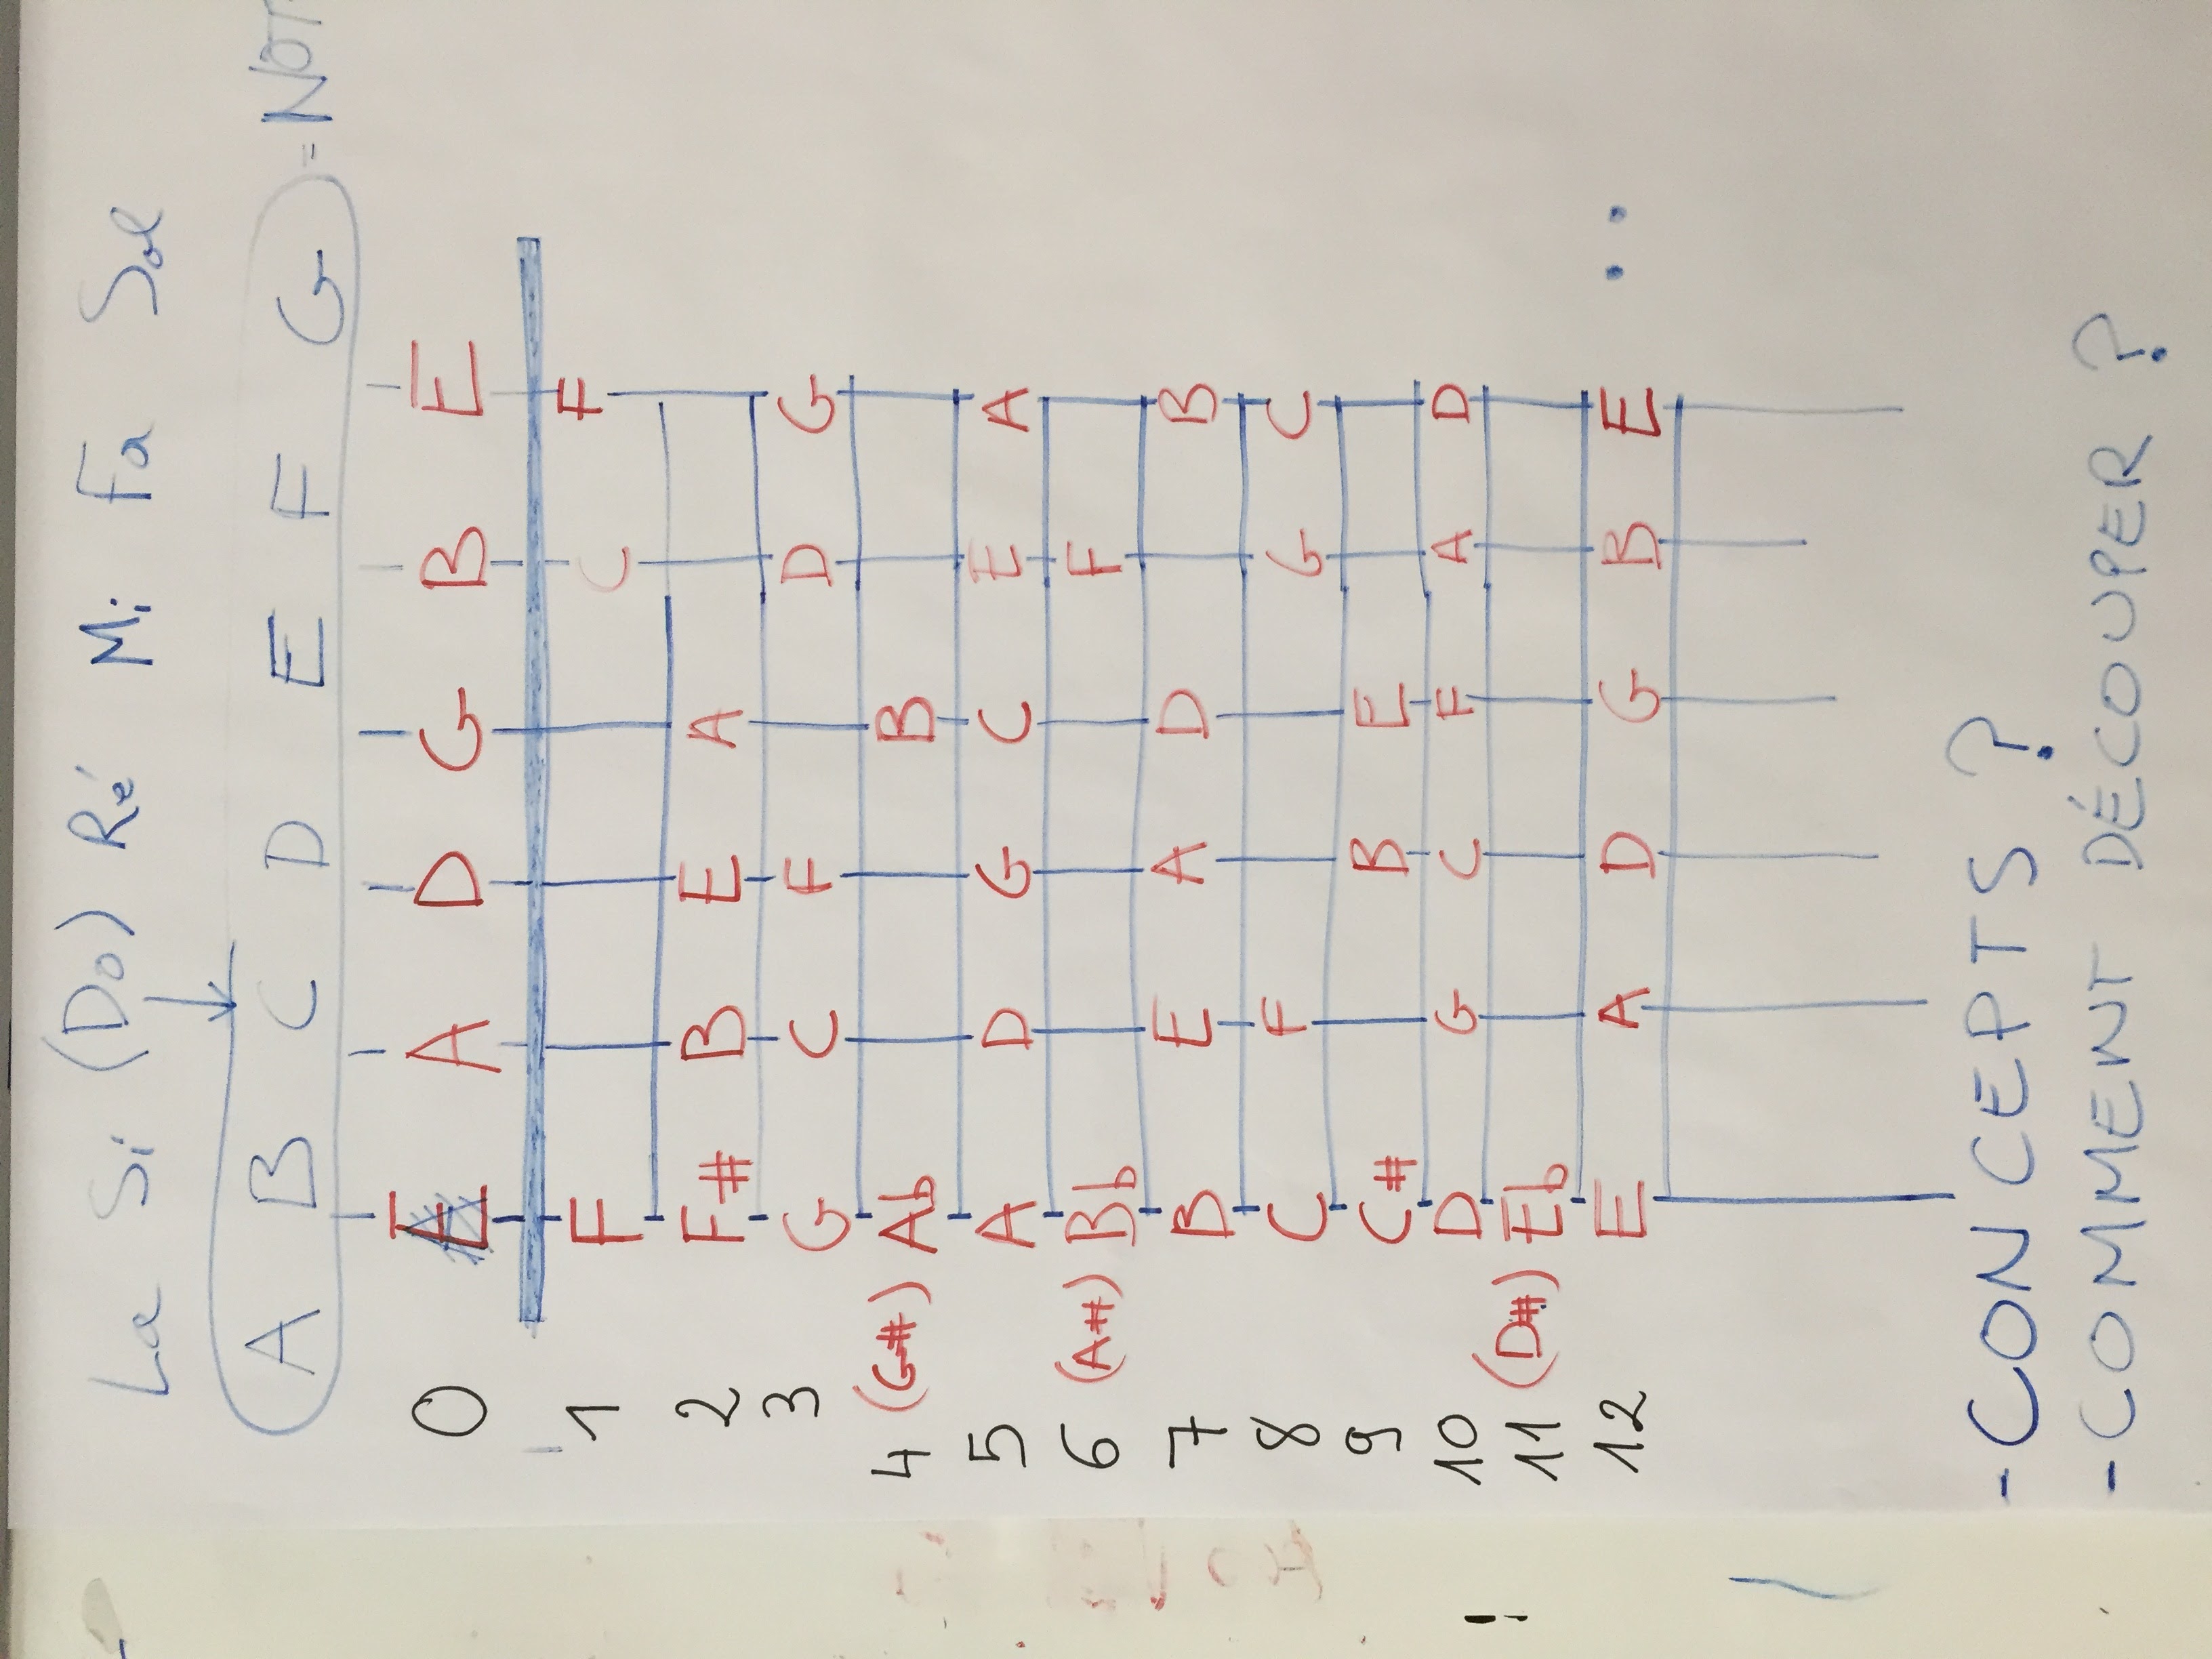 La Si (Do) Ré Mi Fa Sol
A B C D E F G = NOT
0 E A D G B E
1 F C F
2 F# B E A
3 G C F D G
4 (G#) Ab B
5 A D G C E A
6 (A#) Bb F
7 B E A D B
8 C F G C
9 C# B E
10 D G C F A D
11 (D#) Eb
12 E A D G B E ..
- CONCEPTS ?
- COMMENT DÉCOUPER ?
!